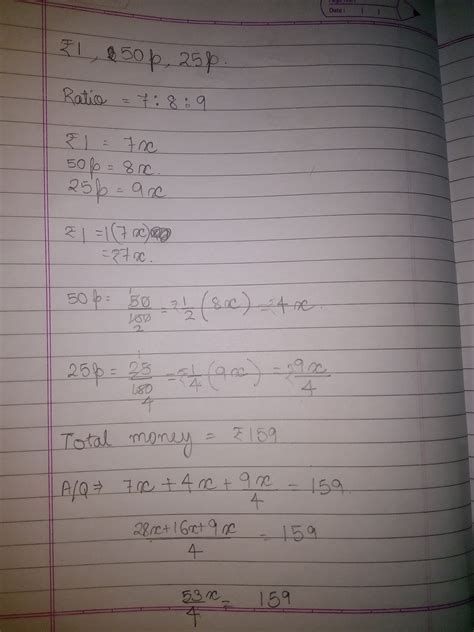 Date :
₹1, 50p, 25p.
Ratio = 7:8:9
₹1 = 7x
50p = 8x
25p = 9x
₹1 = 1(7x)
= ₹7x.
50p = 50/100 = ₹1/2 (8x) = ₹4x
25p = 25/100 = ₹1/4 (9x) = ₹9x/4
Total money = ₹159
A/Q ⇒ 7x + 4x + 9x/4 = 159
28x+16x+9x/4 = 159
53x/4 = 159